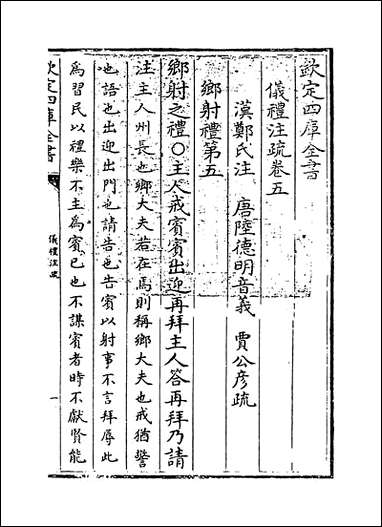 欽定四庫全書
儀禮注疏卷五
漢鄭氏注 唐陸德明音義 賈公彥疏
鄉射禮第五
鄉射之禮○主人戒賓賓出迎再拜主人答再拜乃請
注主人州長也鄉大夫若在焉則稱鄉大夫也戒猶警
也語也出迎出門也請告也告賓以射事不言拜辱此
為習民以禮樂不主為賓己也不謀賓者時不獻賢能
欽定四庫全書
儀禮注疏
一